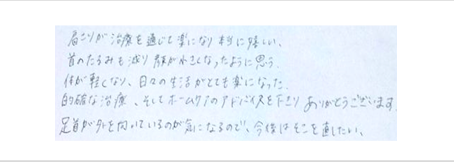 肩こりが治療を通じて楽になり本当に嬉しい、
首のたるみも減り顔が小さくなったように思う.
体が軽くなり、日々の生活がとても楽になった.
的確な治療、そしてホームケアのアドバイスを下さりありがとうございます.
足首が外を向いているのが気になるので、今後はそこを直したい、